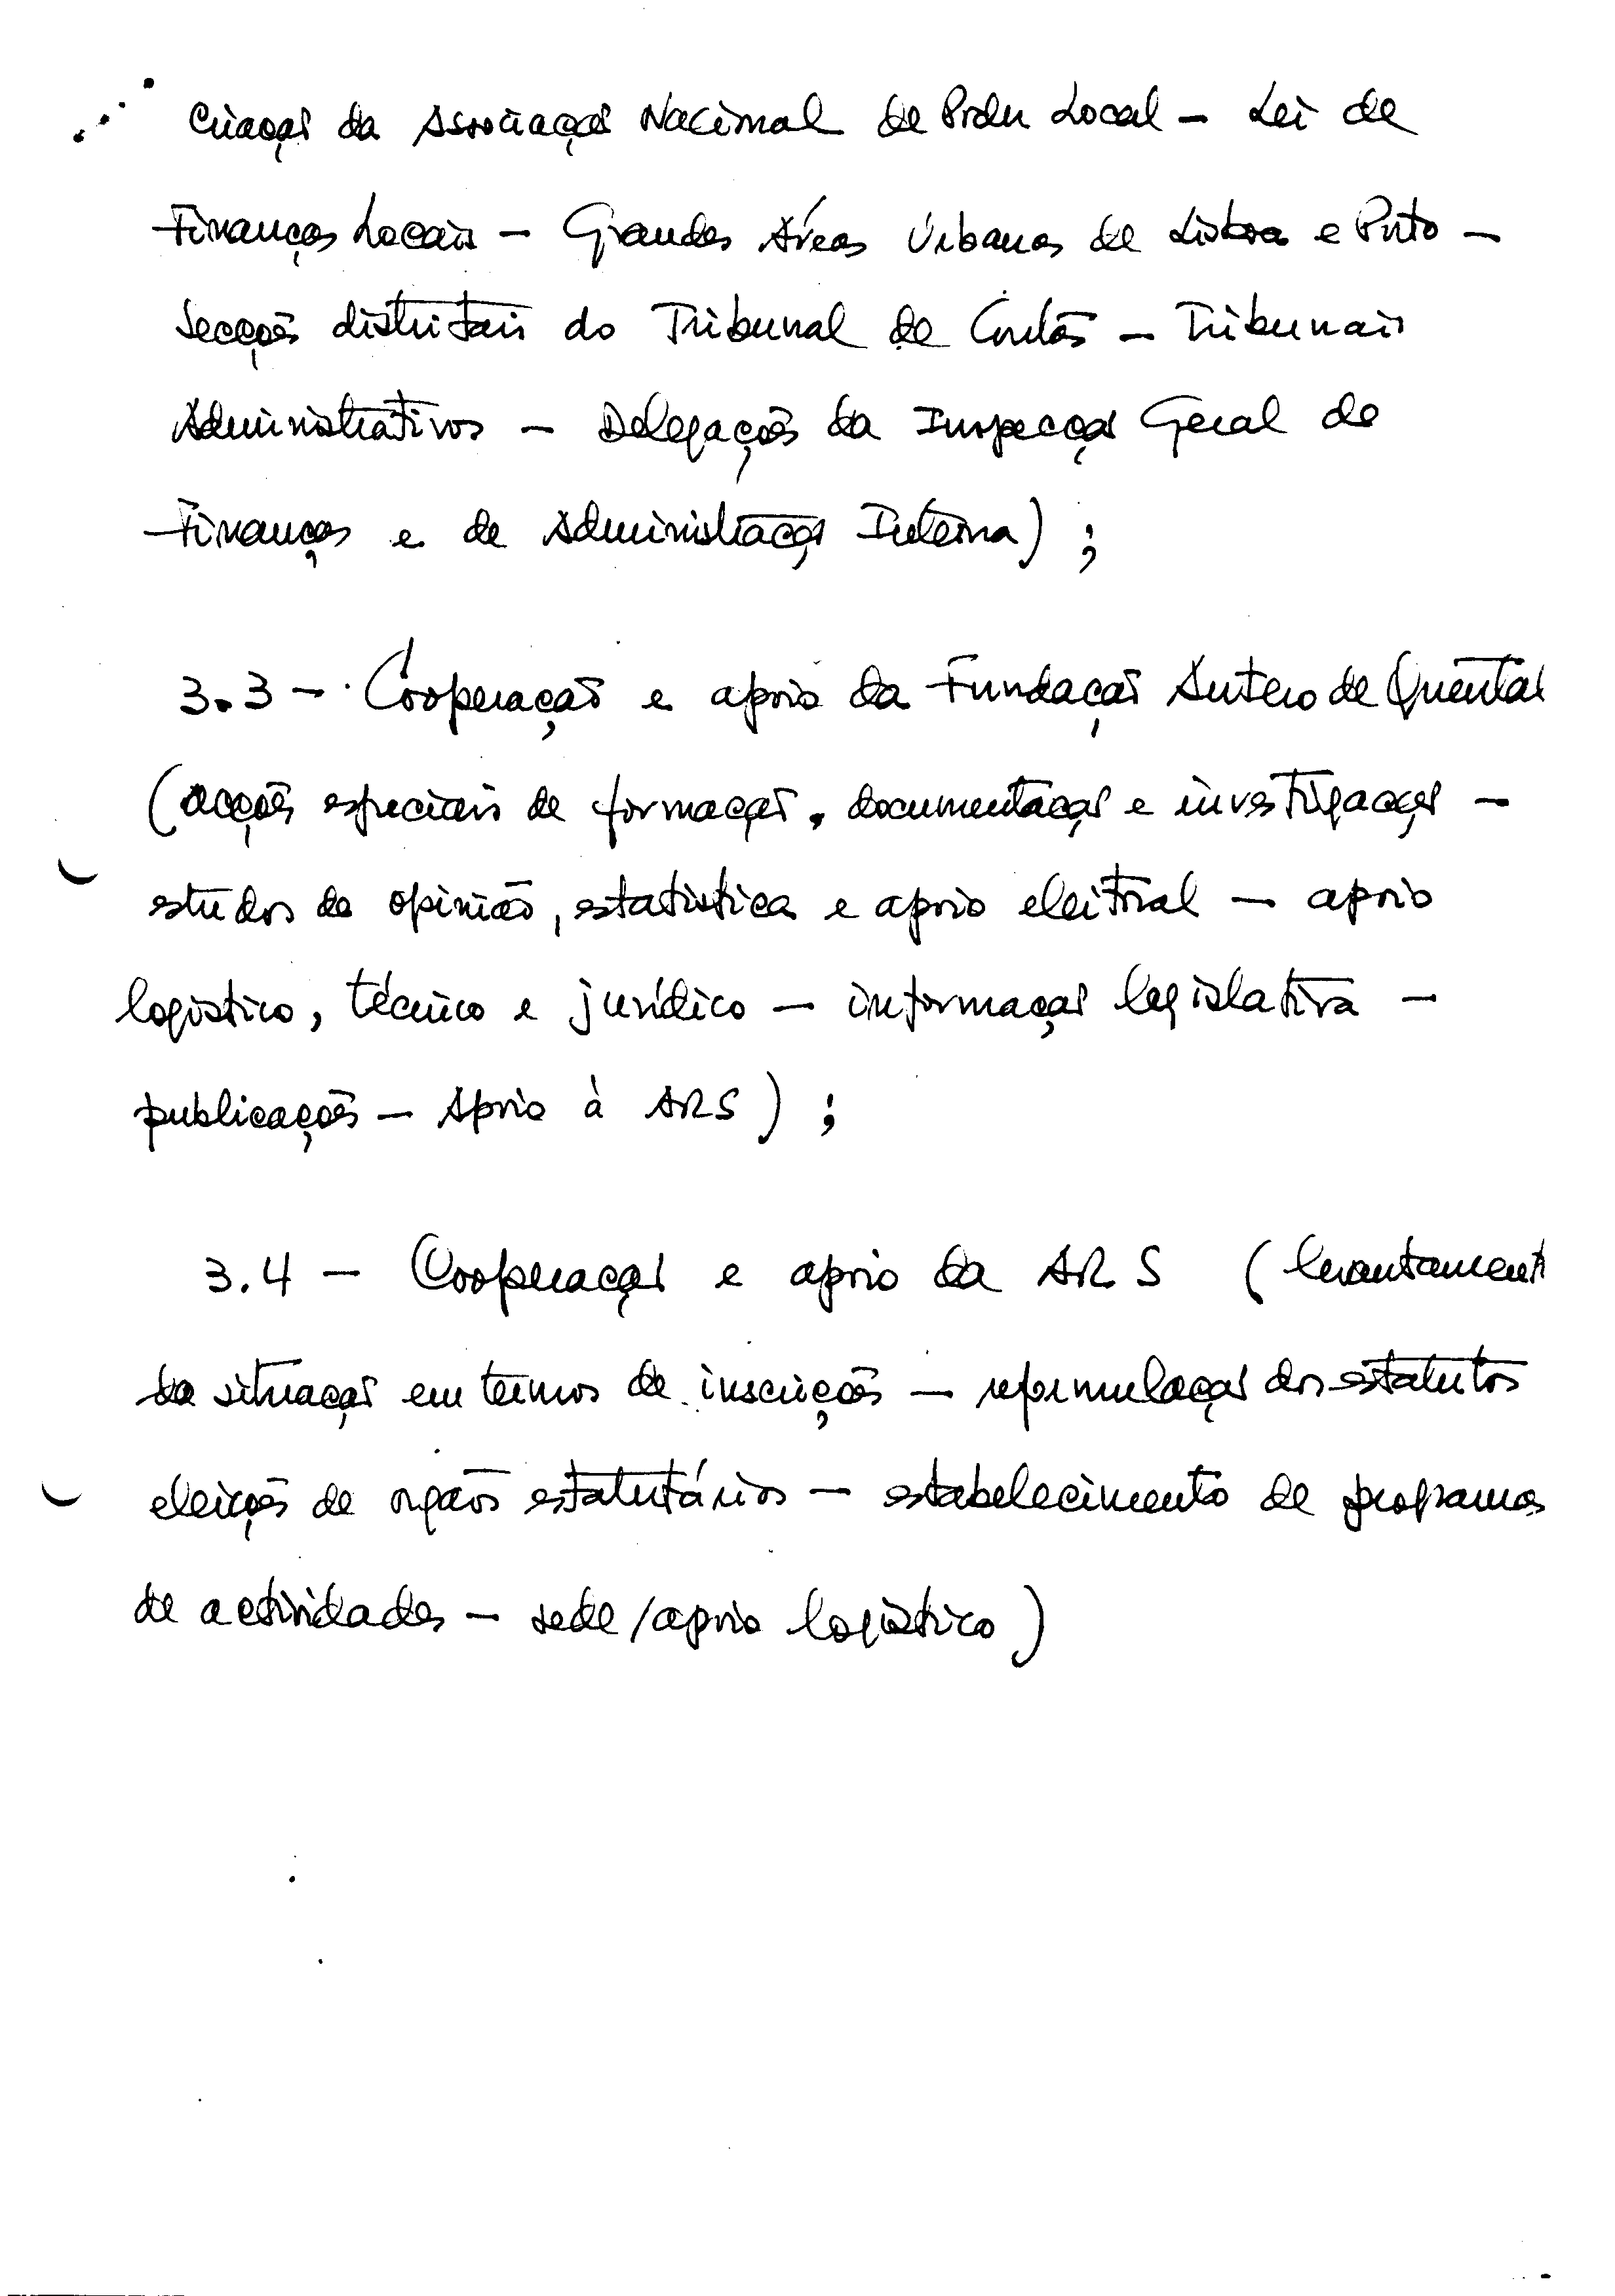 Criação da Associação Nacional de Poder Local – Lei de
Finanças Locais – Grandes Áreas Urbanas de Lisboa e Porto –
Secções distritais do Tribunal de Contas – Tribunais
Administrativos – Delegações da Inspecção Geral de
Finanças e de Administração Interna) ;
3.3 – Cooperação e apoio da Fundação Antero de Quental
(acções especiais de formação, documentação e investigação –
estudos de opinião, estatística e apoio eleitoral – apoio
logístico, técnico e jurídico – informação legislativa –
publicações – Apoio à ARS) ;
3.4 – Cooperação e apoio da ARS (levantament
da situação em termos de inscrições – reformulação dos estatutos
eleições de orgãos estatutários – estabelecimento de programas
de actividades – sede/apoio logístico)